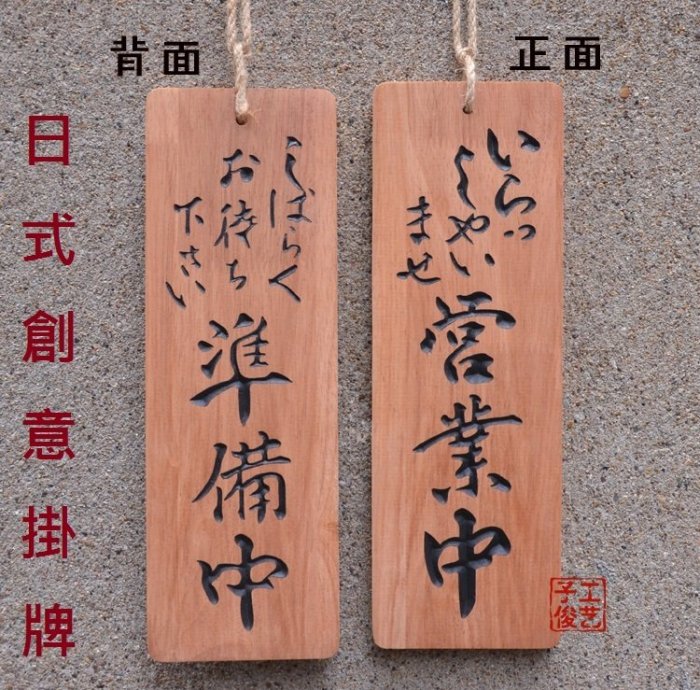 背面
正面
日式創意掛牌
しばらく
お待ち
下さい
準備中
いらっ
しゃい
ませ
営業中
子俊
工艺